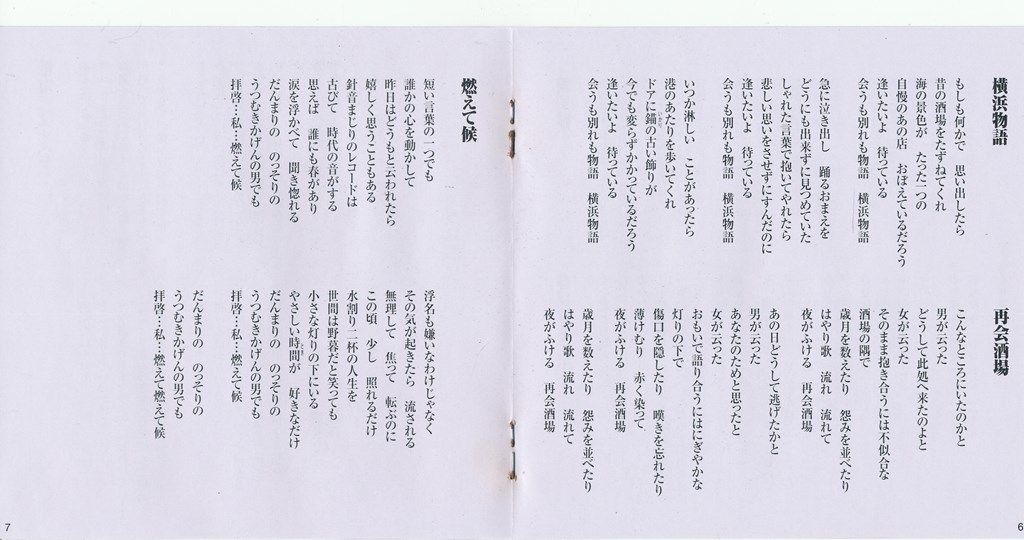 横浜物語
もしも何かで　思い出したら
昔の酒場をたずねてくれ
海の景色が　たった一つの
自慢のあの店　おぼえているだろう
逢いたいよ　待っている
会うも別れも物語　横浜物語
急に泣き出し　踊るおまえを
どうにも出来ずに見つめていた
しゃれた言葉で抱いてやれたら
悲しい思いをさせずにすんだのに
逢いたいよ　待っている
会うも別れも物語　横浜物語
いつか淋しい　ことがあったら
港のあたりを歩いてくれ
ドアに錨の古い飾りが
今でも変らずかかっているだろう
逢いたいよ　待っている
会うも別れも物語　横浜物語
再会酒場
こんなところにいたのかと
男が云った
どうして此処へ来たのよと
女が云った
そのまま抱き合うには不似合な
酒場の隅で
歳月を数えたり　怨みを並べたり
はやり歌　流れ　流れて
夜がふける　再会酒場
あの日どうして逃げたかと
男が云った
あなたのためと思ったと
女が云った
おもいで語り合うにはにぎやかな
灯りの下で
傷口を隠したり　嘆きを忘れたり
薄けむり　赤く染って
夜がふける　再会酒場
歳月を数えたり　怨みを並べたり
はやり歌　流れ　流れて
夜がふける　再会酒場
6
燃えて候
短い言葉の一つでも
誰かの心を動かして
昨日はどうもと云われたら
嬉しく思うこともある
針音まじりのレコードは
古びて　時代の音がする
思えば　誰にも春があり
涙を浮かべて　聞き惚れる
だんまりの　のっそりの
うつむきかげんの男でも
拝啓…私…燃えて候
浮名も嫌いなわけじゃなく
その気が起きたら　流される
無理して　焦って　転ぶのに
この頃　少し　照れるだけ
水割り二杯の人生を
世間は野暮だと笑っても
小さな灯りの下にいる
やさしい時間が　好きなだけ
だんまりの　のっそりの
うつむきかげんの男でも
拝啓…私…燃えて候
だんまりの　のっそりの
うつむきかげんの男でも
拝啓…私…燃えて燃えて候
7